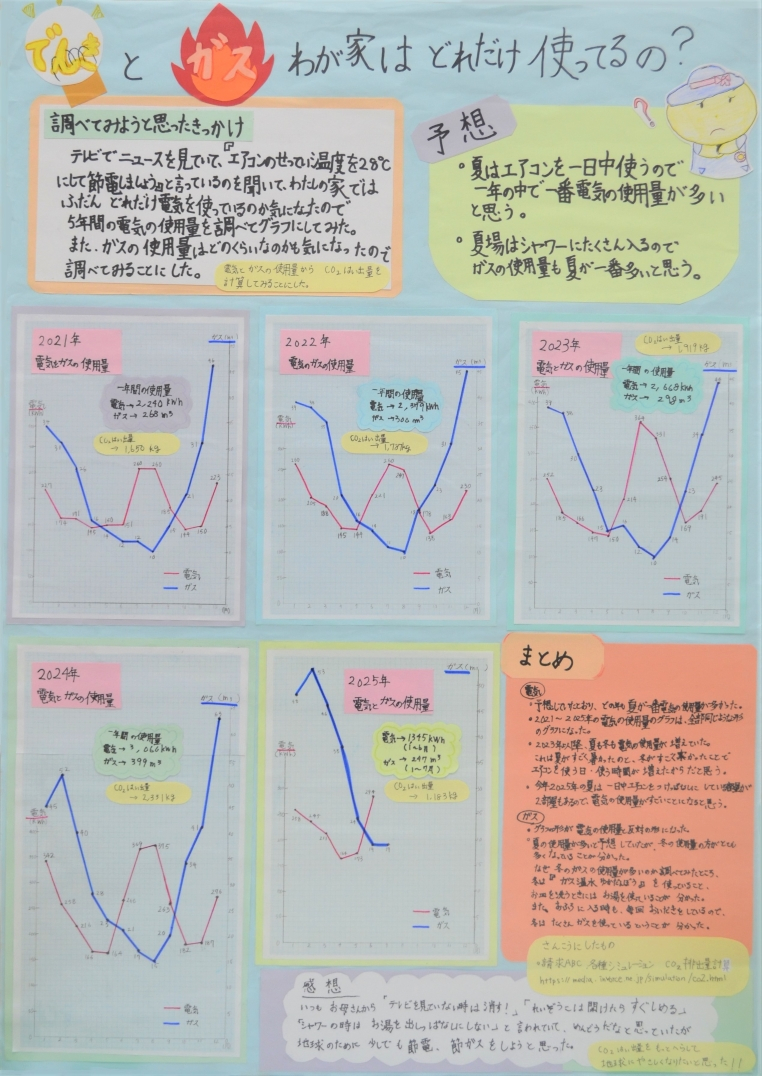 でんき と ガス わが家は どれだけ 使ってるの?
調べてみようと思ったきっかけ
テレビでニュースを見ていて、『エアコンのせってい温度を28℃
にして節電しましょう』と言っているのを聞いて、わたしの家では
ふだん どれだけ電気を使っているのか気になったので
5年間の電気の使用量を調べてグラフにしてみた。
また、ガスの使用量はどのくらいなのかも気になったので
調べてみることにした。
電気とガスの使用量から CO₂はい出量を
計算してみることにした。
予想
?
・夏はエアコンを一日中使うので
一年の中で一番電気の使用量が多い
と思う。
・夏場はシャワーにたくさん入るので
ガスの使用量も夏が一番多いと思う。
2021年
電気とガスの使用量
一年間の使用量
電気→2,240kWh
ガス→268m³
CO₂はい出量
→1,650kg
電気
ガス
2022年
電気とガスの使用量
一年間の使用量
ガス→300m³
CO₂はい出量
電気
ガス
2023年
電気とガスの使用量
CO₂はい出量
→1,919kg
一年間の使用量
電気→2,668kWh
ガス→298m³
電気
ガス
2024年
電気とガスの使用量
一年間の使用量
電気→3,060kWh
ガス→399m³
CO₂はい出量
電気
ガス
2025年
電気とガスの使用量
電気→1345kWh
(1~6月)
ガス→247m³
(1~7月)
CO₂はい出量
電気
ガス
まとめ
電気
・予想していたとおり、どの年も夏が一番電気の使用量が多かった。
・2021~2025年の電気の使用量のグラフは、全部同じような形
のグラフになった。
・2023年以降、夏も冬も電気の使用量が増えていた。
これは夏がすごく暑かったのと、冬がすごく寒かったことで
エアコンを使う日・使う時間が増えたからだと思う。
・今年2025年の夏は 一日中エアコンをつけっぱなしに している
2部屋もあるので、電気の使用量がすごいことになると思う。
ガス
・グラフの形が電気の使用量と反対の形になった。
・夏の使用量が多いと予想していたが、冬の使用量の方がとても
多くなっていることが分かった。
なぜ 冬のガスの使用量が多いのか調べてみたところ、
冬は『ガス温水ゆかだんぼう』を使っていること、
お皿を洗うときには お湯を使っていることが 分かった。
また、おふろに入る時も、毎回 おいだきをしているので、
冬は たくさん ガスを使っているということが 分かった。
さんこうにしたもの
・請求ABC 各種シミュレーション CO₂排出量計算
感想
いつも お母さんから 「テレビを見ていない時は消す!」「れいぞうこは開けたら すぐしめる」
「シャワーの時は お湯を出しっぱなしにしない」と言われていて、めんどうだなと思っていたが
地球のために 少しでも節電、節ガスをしようと思った。
CO₂はい出量をもっとへらして
地球にやさしくなりたいと思った!!